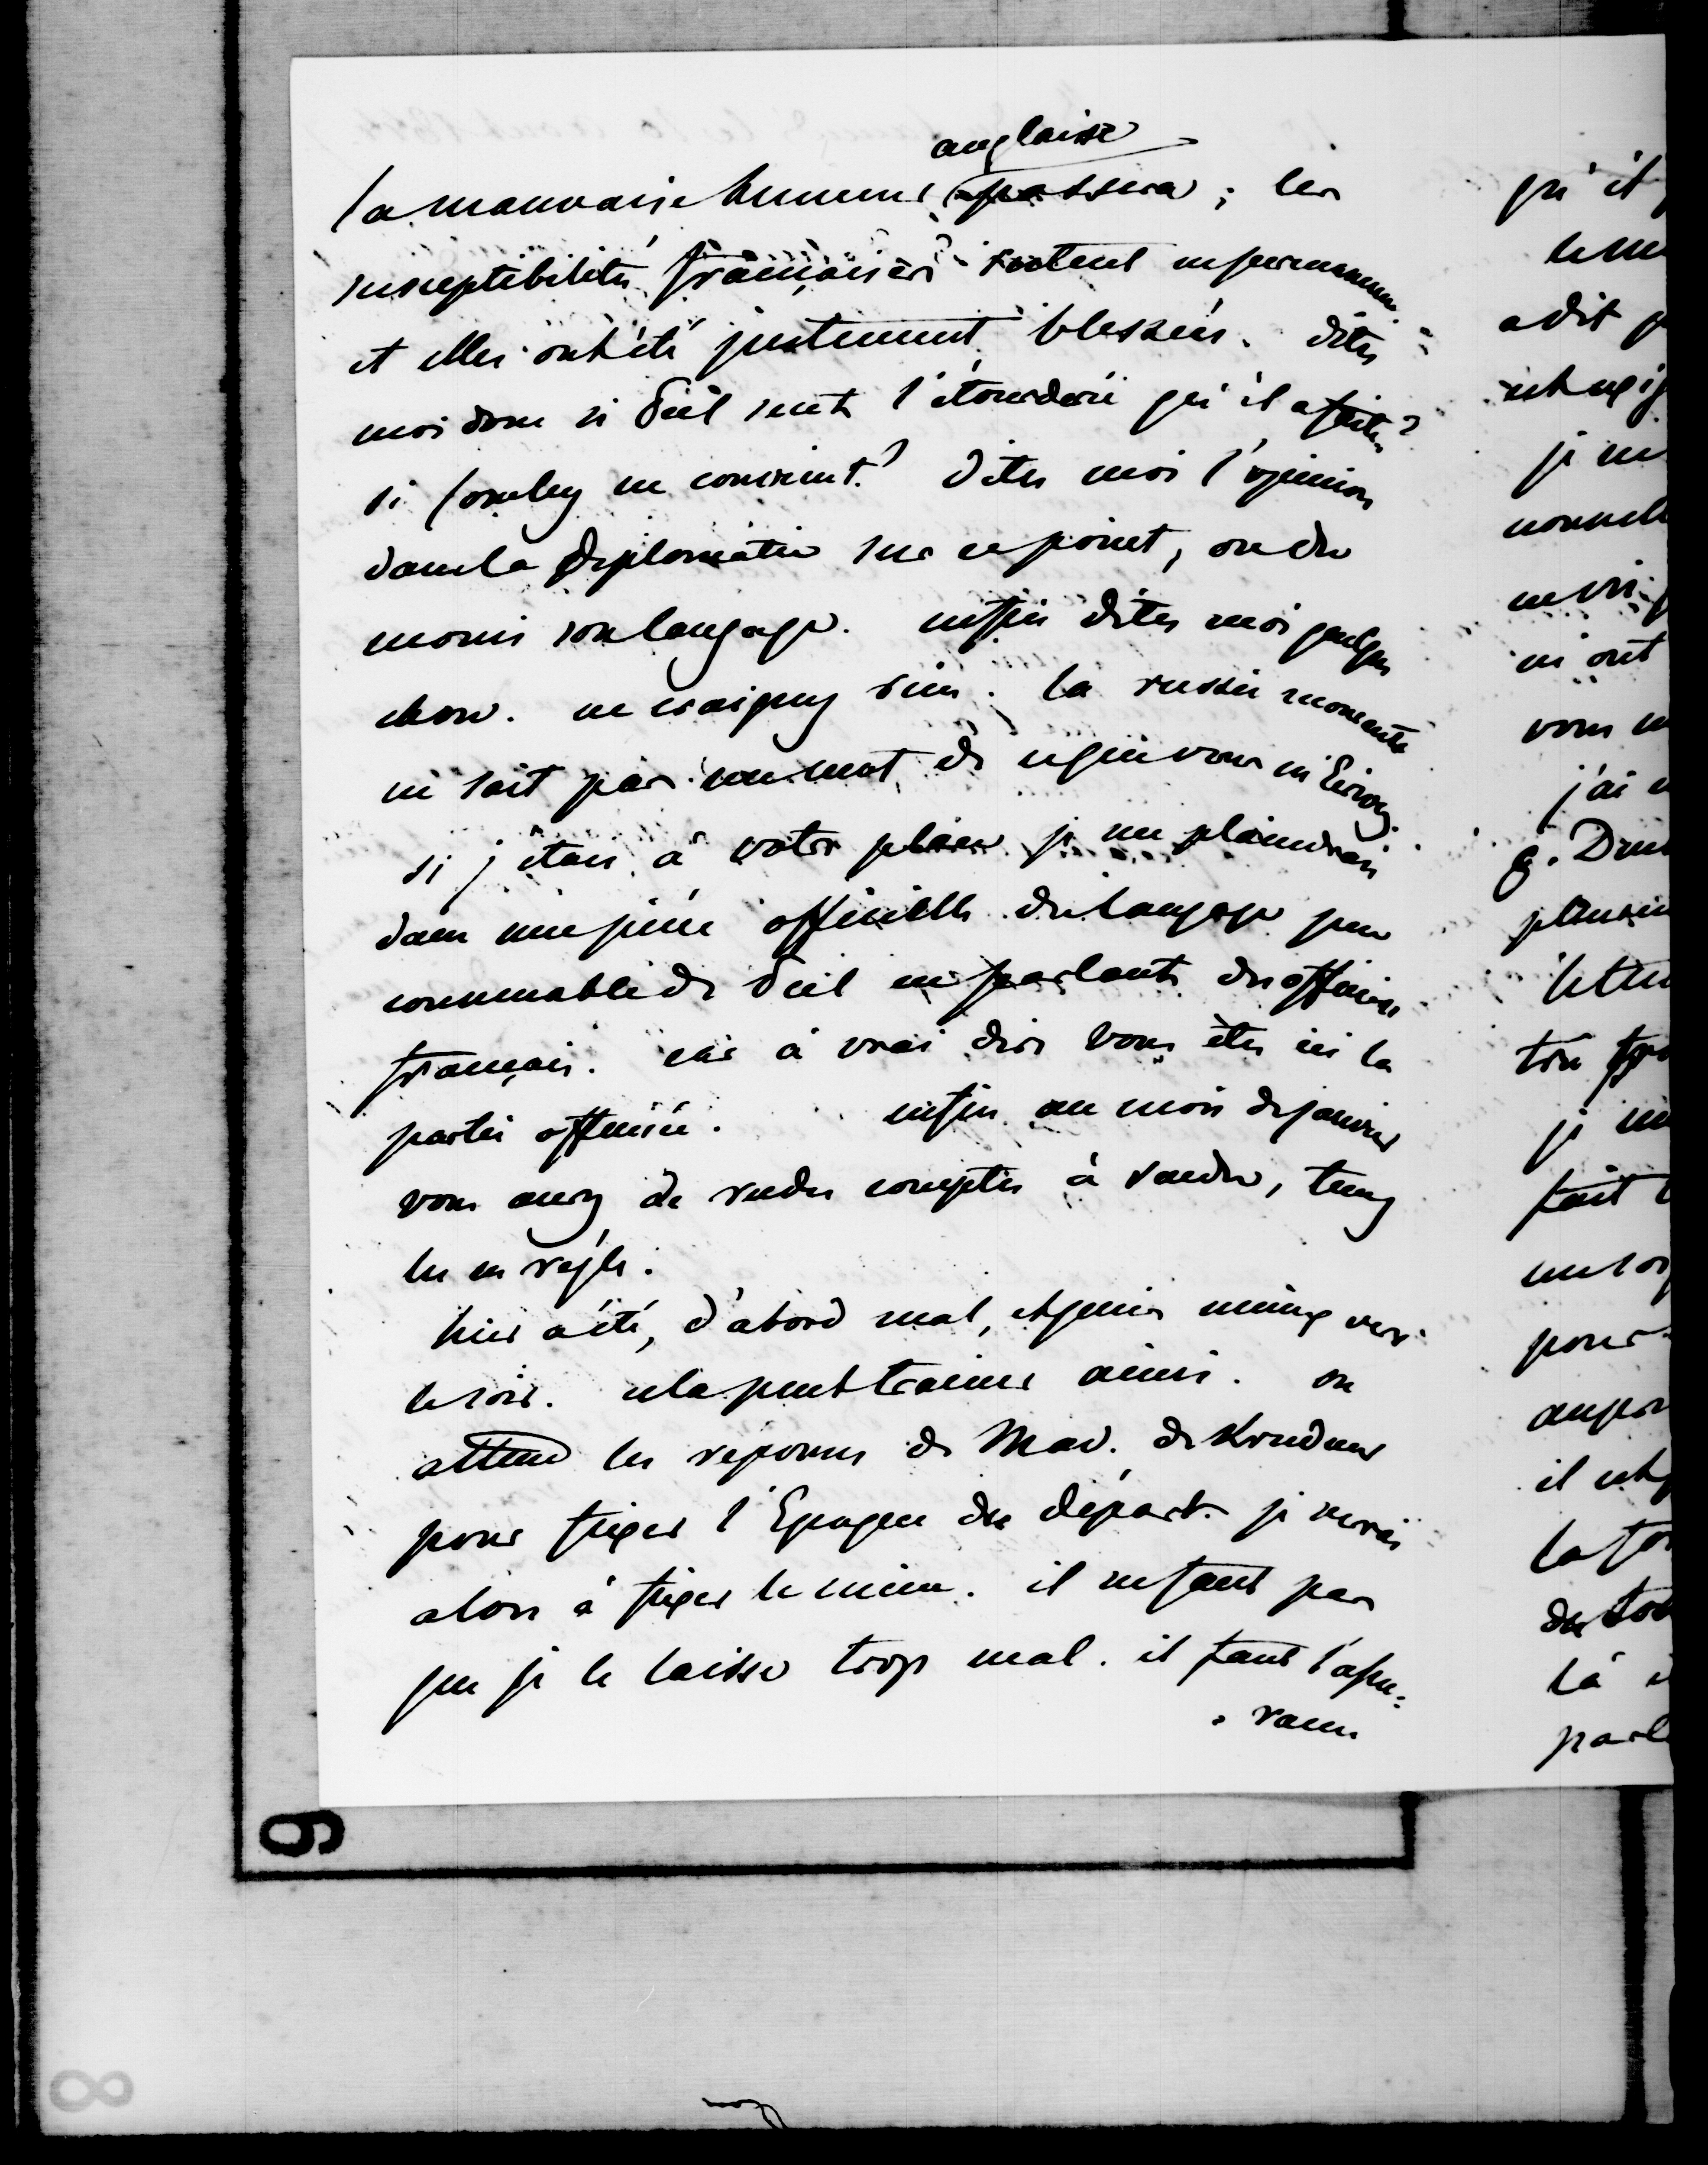 anglaise
la mauvaise humeur passera ; les
susceptibilités françaises restent en permanence
et elles ont été justement blessées. dites
moi donc si Peel sent l'étourderie qu'il a faite ?
si Cowley en convient ? dites moi l'opinion
dans la diplomatie sur ce point, ou du
moins son langage. enfin dites moi quelque
chose. ne craignez rien. la russie
ne sait pas un mot de ce que vous m'Ecrivez.
si j'étais à votre place je me plaindrais
dans une pièce officielle du langage peu
convenable de Peel en parlant des officiers
français. car à vrai dire vous êtes ici la
partie offensée. enfin au mois de janvier
vous aurez de rudes comptes à rendre, tenez
les en règle.
hier a été, d'abord mal, et puis mieux vers
le soir. cela peut trainer ainsi. on
attend les réponses de Mad. de Krudner
pour fixer l'Epoque du départ. je verrai
alors à fixer le mien. il ne faut pas
que je le laisse trop mal. il faut
qu'il
a dit
je ne
nouvelle
m'ont
vous
j'ai
plusieurs
lettre
très
je
fait
pour
il est
là
9
8